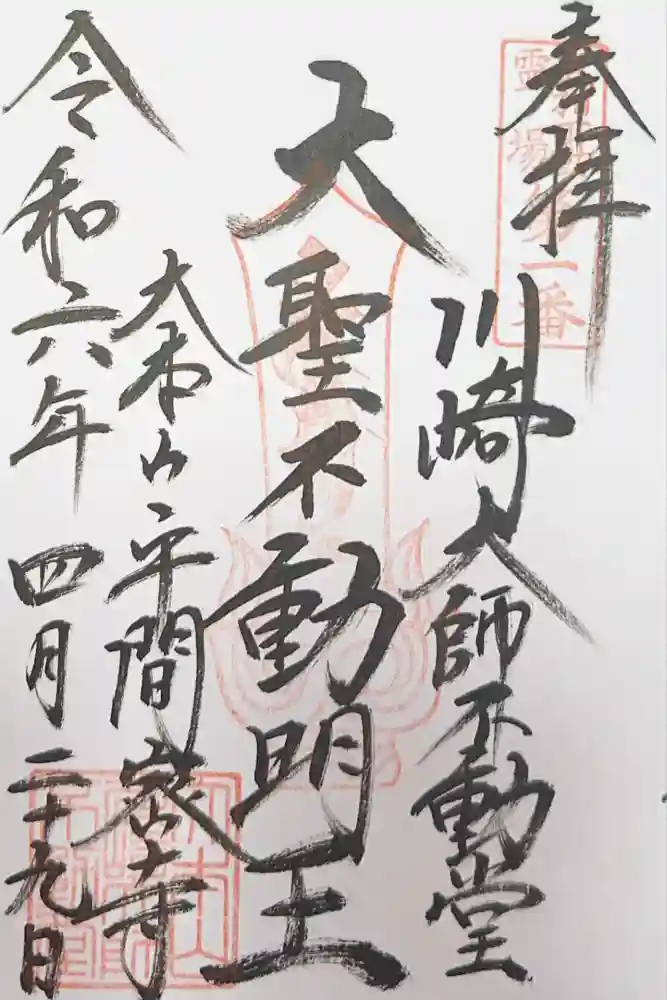 奉拝
靈場
一番
川崎大師不動堂
大聖不動明王
大本山平間密寺
令和六年四月二十九日